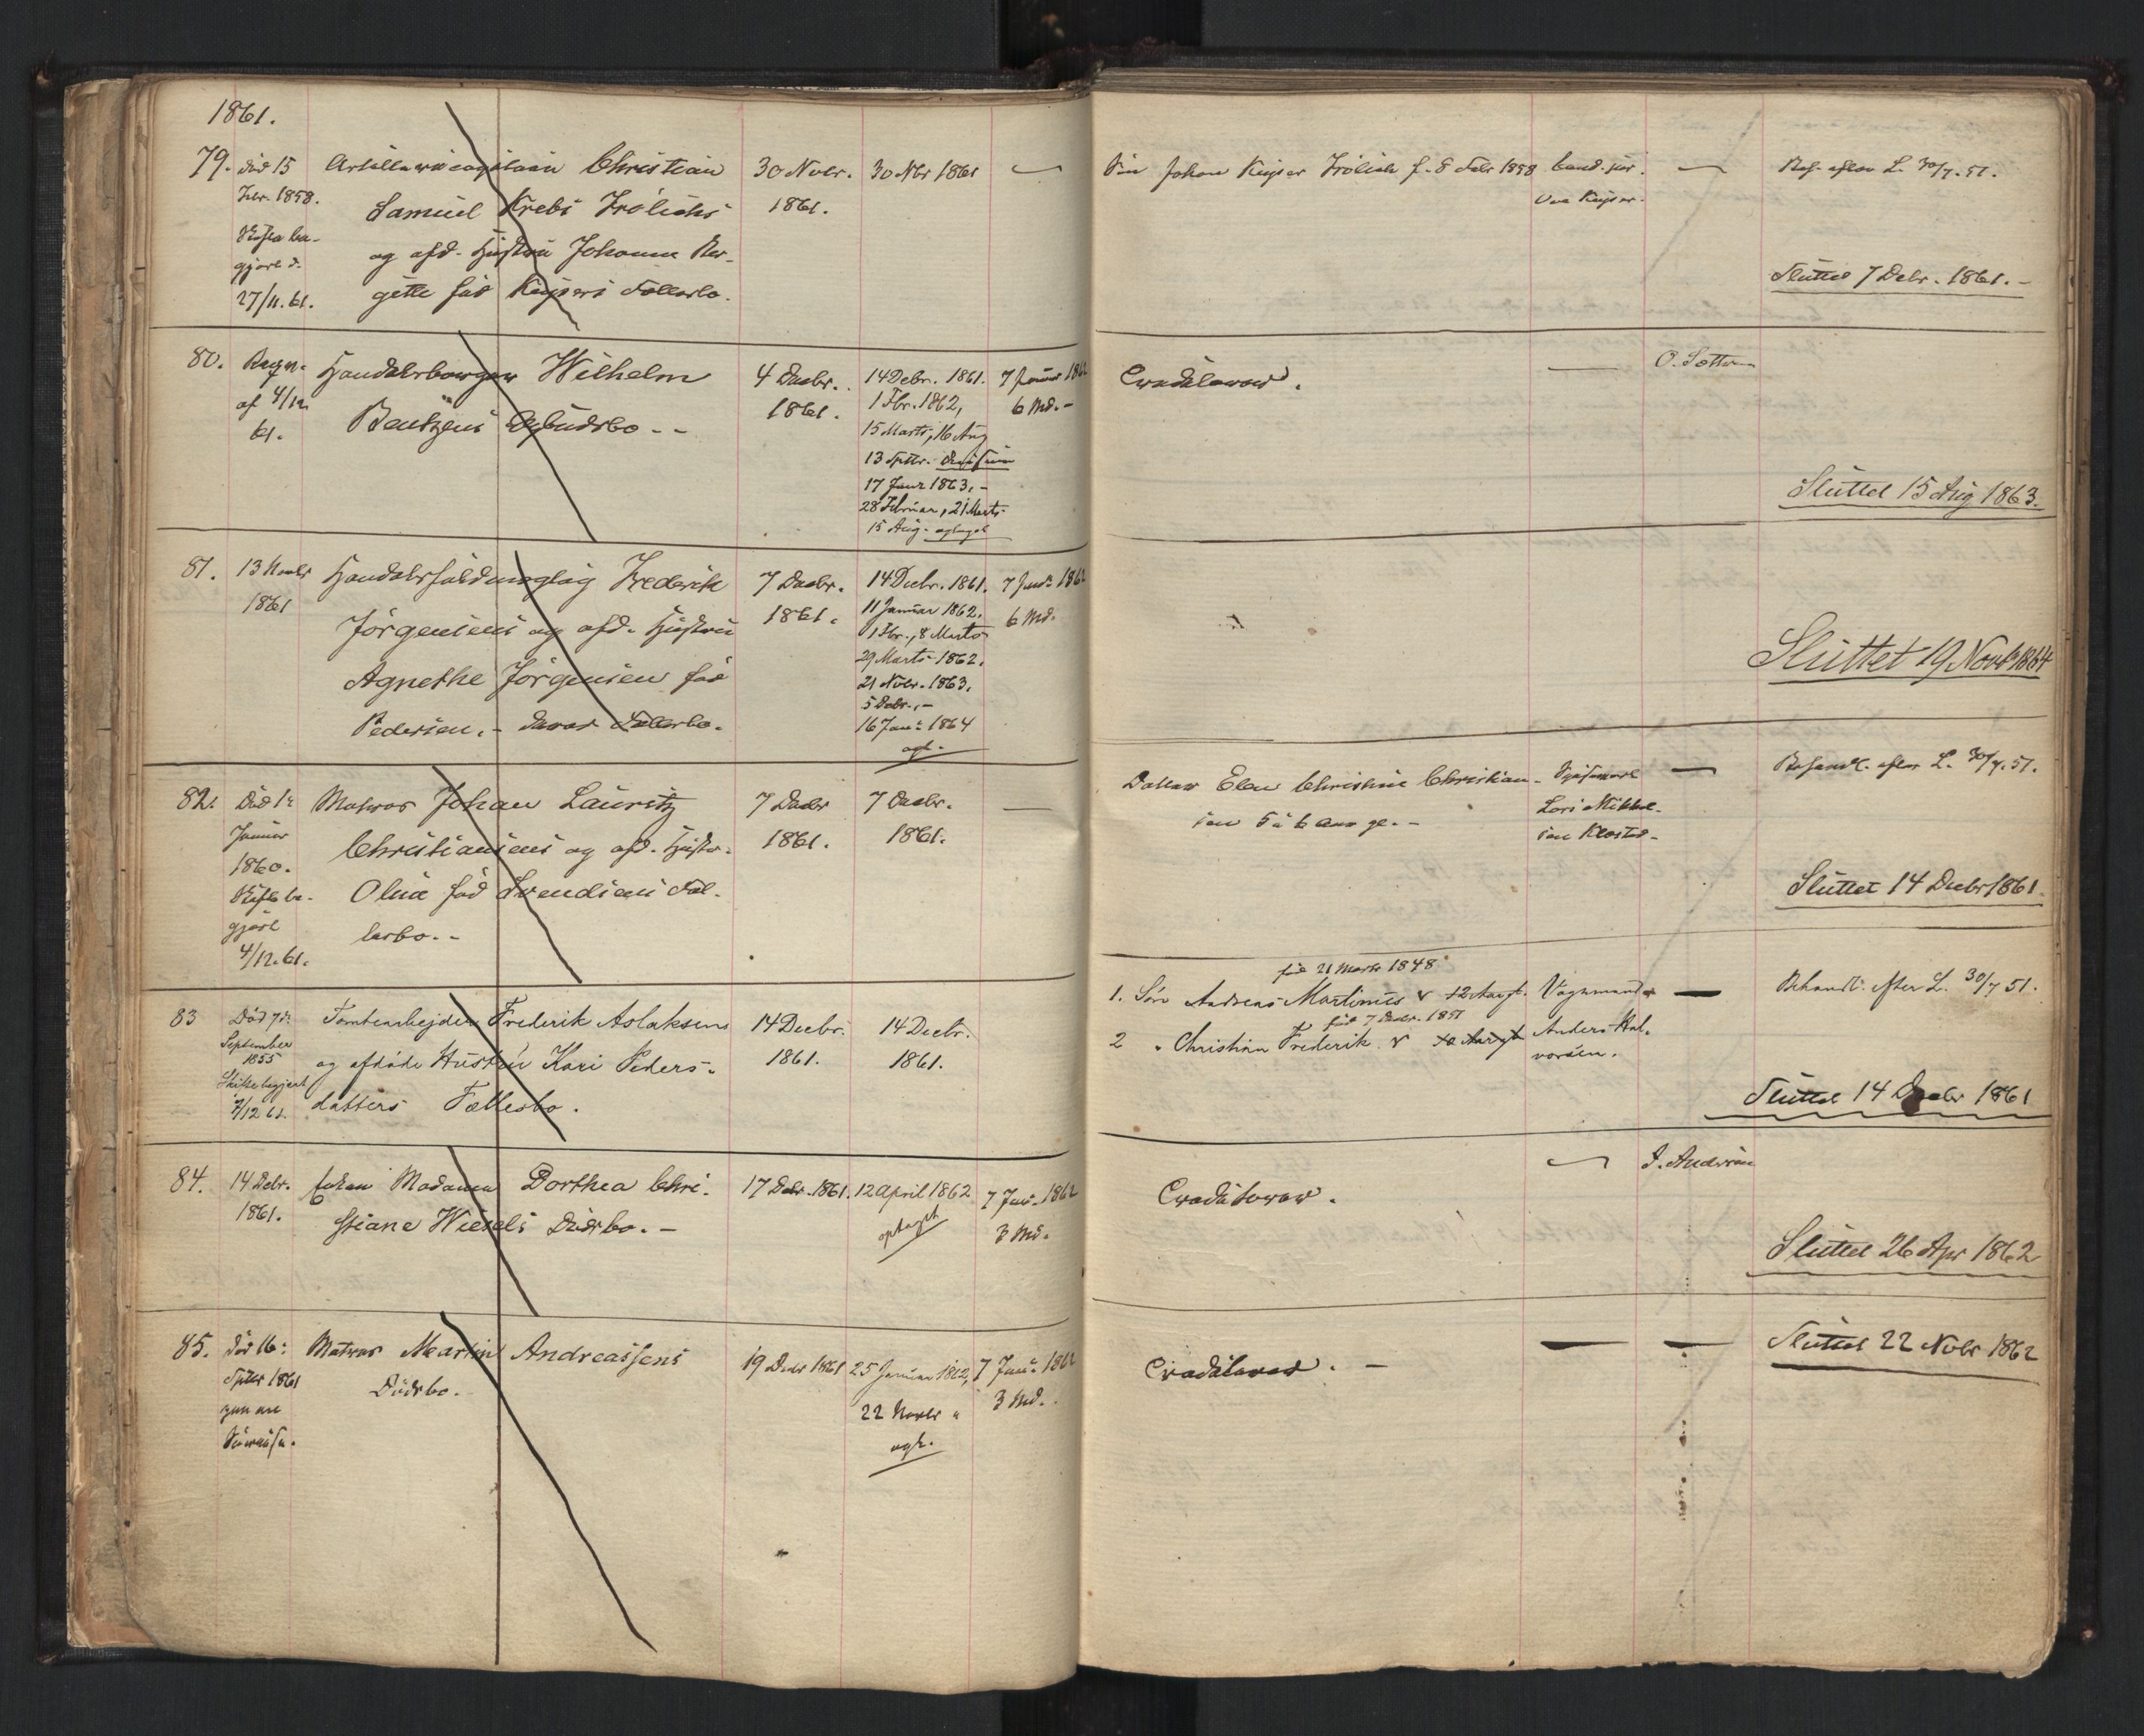 1861.
79. Død 15
Febr. 1858.
Skifte be-
gjært d.
27/11.61.
Artilleriecapitain Christian
Samuel Krebs Frølichs
og afd. Hustru Johanne Ber-
gitte fød Keysers Fællesbo.
30 Novbr.
1861.
30 Nbr 1861
Søn Johan Keyser Frølich f. 8 Febr 1858
Cand. jur.
Keyser.
Beh. efter L. 30/7.51.
Sluttet 7 Debr. 1861.
80. Reqn.
af 4/12
61.
Handelsborger Wilhelm
Bentzens Opbudsbo
4 Decbr.
1861.
14 Debr. 1861.
1 Fbr. 1862,
15 Marts, 16 Aug
13 Sptbr.
17 Janr 1863.
28 Februar, 21 Marts
15 Aug. optaget
7 Januar 1862
6 Md.
Creditorer.
O. Sottm
Sluttet 15 Aug 1863.
81. 13 Novbr
1861
Handelsfuldmægtig Frederik
Jørgensens og afd. Hustru
Agnethe Jørgensen fød
Pedersen, deres Fællesbo.
7 Decbr.
1861.
14 Decbr. 1861.
11 Januar 1862.
1 Fbr., 8 Marts
29 Marts 1862.
21 Nvbr. 1863.
5 Debr.
16 Jan: 1864
opt.
7 Janr 1862
6 Md.
Sluttet 19 Novbr 1864
82. Død 1
Januar
1860.
Skifte be-
gjært
4/12.61.
Matros Johan Lauritz
Christiansens og afd. Hustr.
Olua fød Svendsens Fæl-
lesbo.
7 Decbr
1861.
7 Decbr.
1861.
Datter Elen Christine Christian-
sen 5 à 6 Aar gl.
Lars Mikkel-
sen Klosted
Behandl. efter L. 30/7.51.
Sluttet 14 Decbr 1861
83 Død 7de
September
1855
Skifte begjert
7/12 61.
Tomtearbejder Frederik Aslaksens
og afdøde Hustru Kari Peders-
datters Fællesbo.
14 Decbr.
1861.
14 Decbr.
1861.
fød 21 Marts 1848
1. Søn Andreas Martinus 12 Aargl.
fød 7 Decbr. 1851
2 " Christian Frederik 10 Aargl
Vognmand
Anders Hal-
vorsen.
Behandl: efter L. 30/7 51.
Sluttet 14 Decbr 1861
84. 14 Debr.
1861.
Enken Madame Dorthea Chri-
stiane Wiesels Dødsbo.
17 Debr. 1861.
12 April 1862
optaget
7 Jan. 1862
3 Md.
Creditorer.
J. Andersen
Sluttet 26 Apr 1862
85. Død 16:
Sptbr 1861
paa en
Søreise.
Matros Martin Andreassens
Dødsbo.
19 Decbr 1861
25 Januar 1862,
22 Novbr "
opt.
7 Jan: 1862
3 Md.
Creditorer.
Sluttet 22 Nvbr 1862